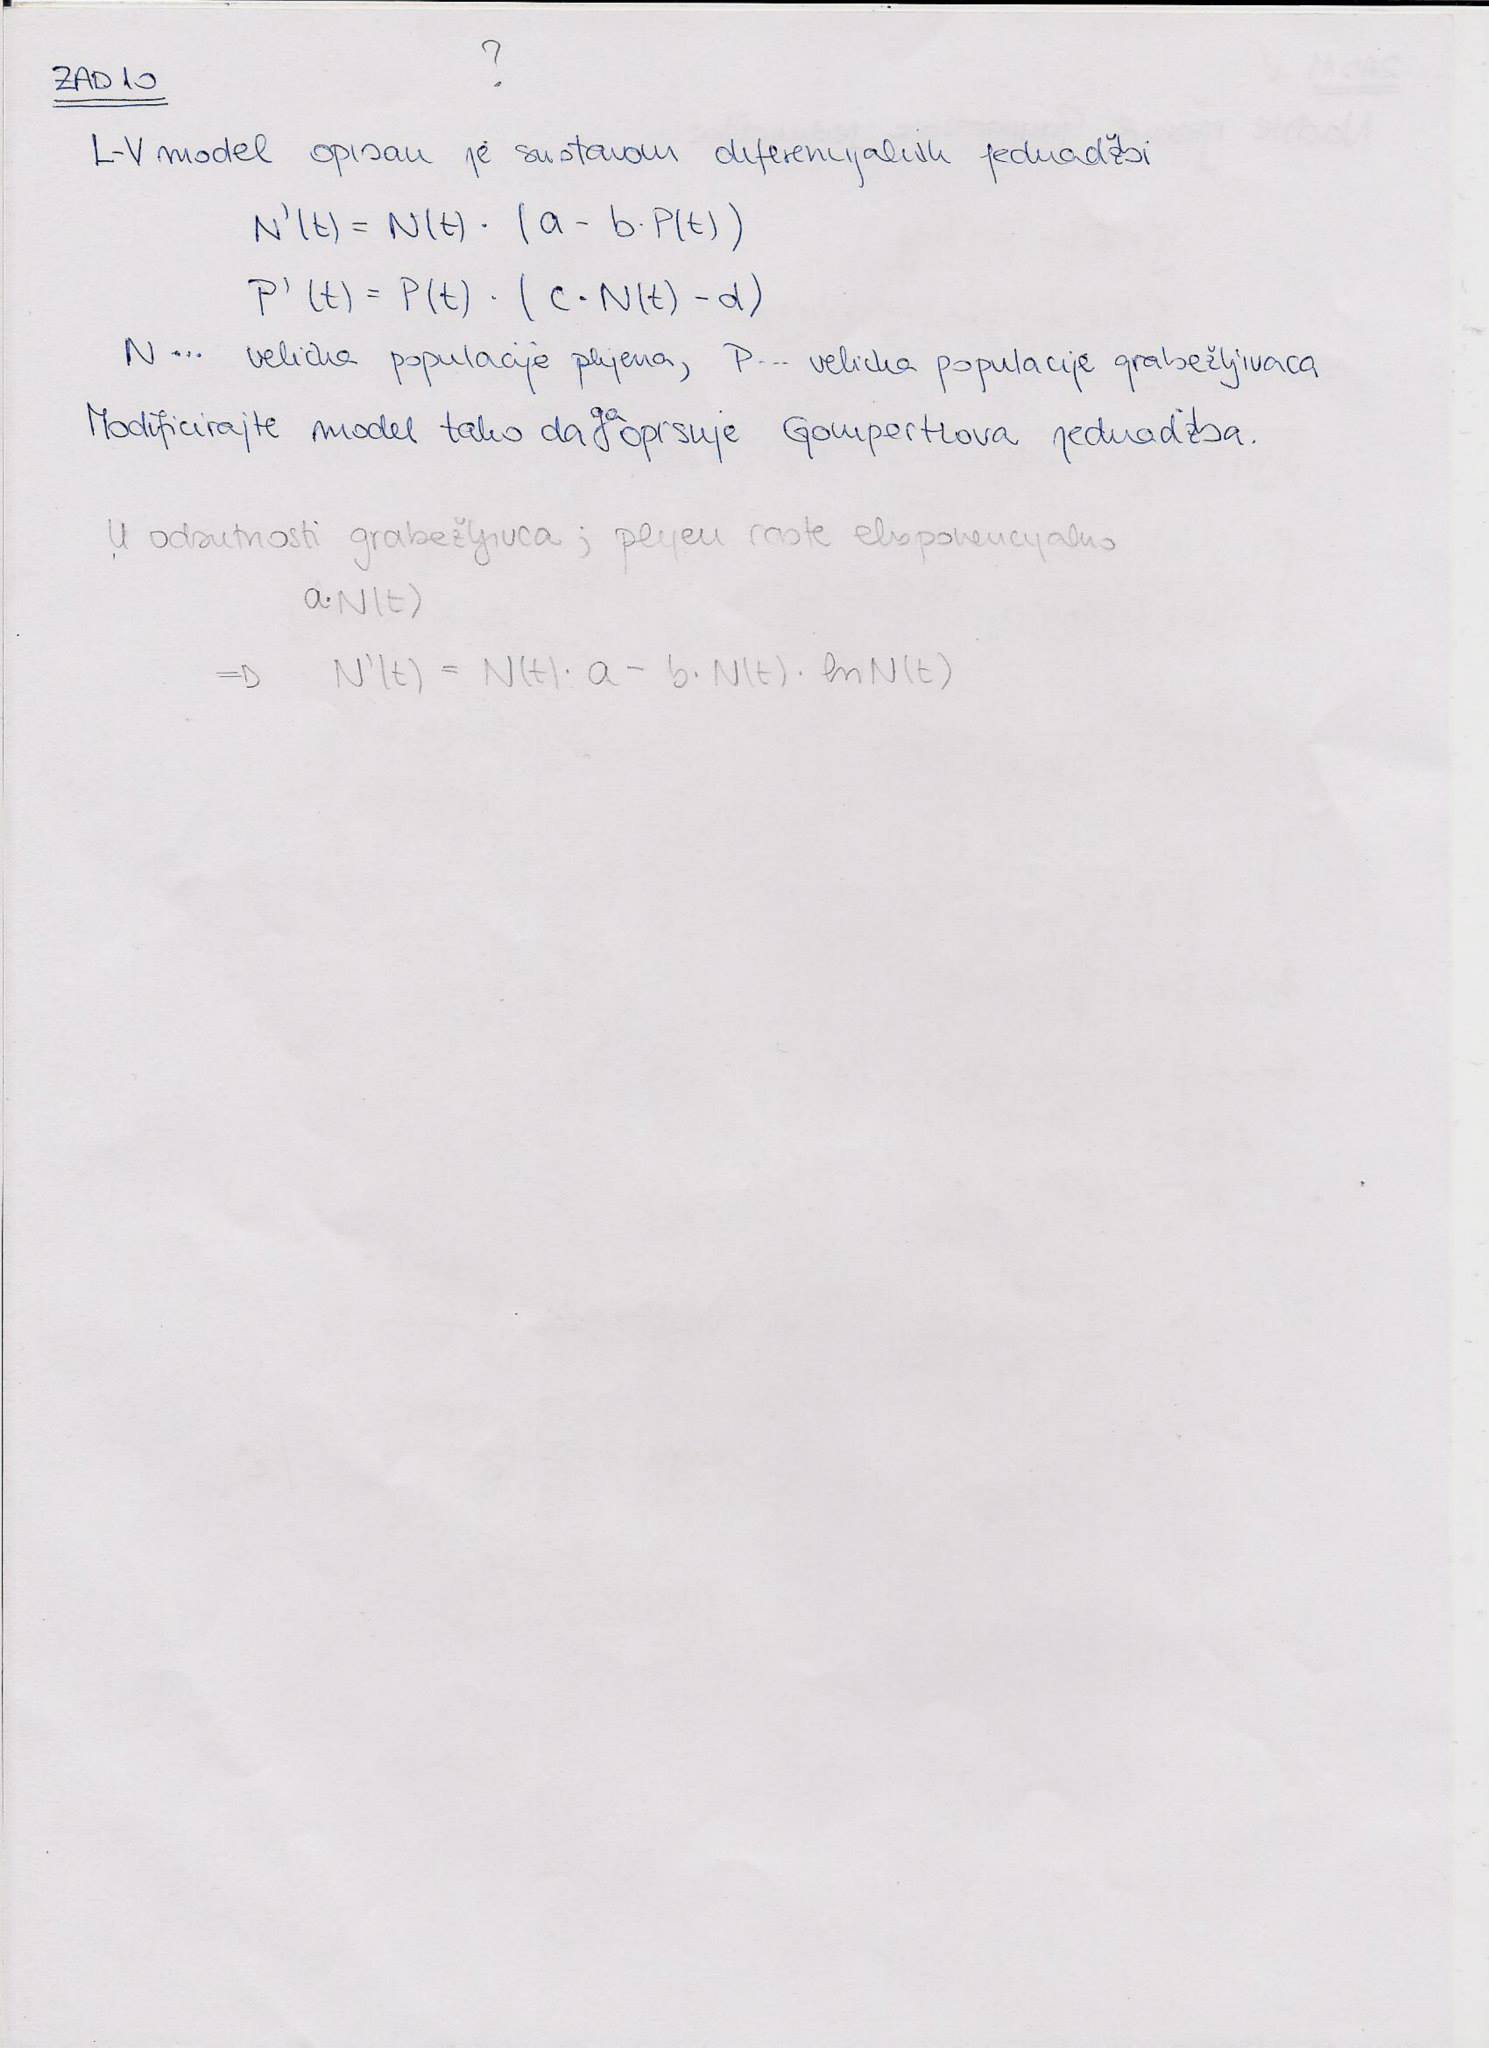 ?
ZAD 10
L-V model opisan je sustavom diferencijalnih jednadžbi
N'(t) = N(t) · (a - b · P(t))
P'(t) = P(t) · (c · N(t) - d)
N ... veličina populacije plijena, P ... veličina populacije grabežljivaca
Modificirajte model tako da ga opisuje Gompertzova jednadžba.
U odsutnosti grabežljivca ; plijen raste eksponencijalno
a·N(t)
=> N'(t) = N(t) · a - b · N(t) · ln N(t)